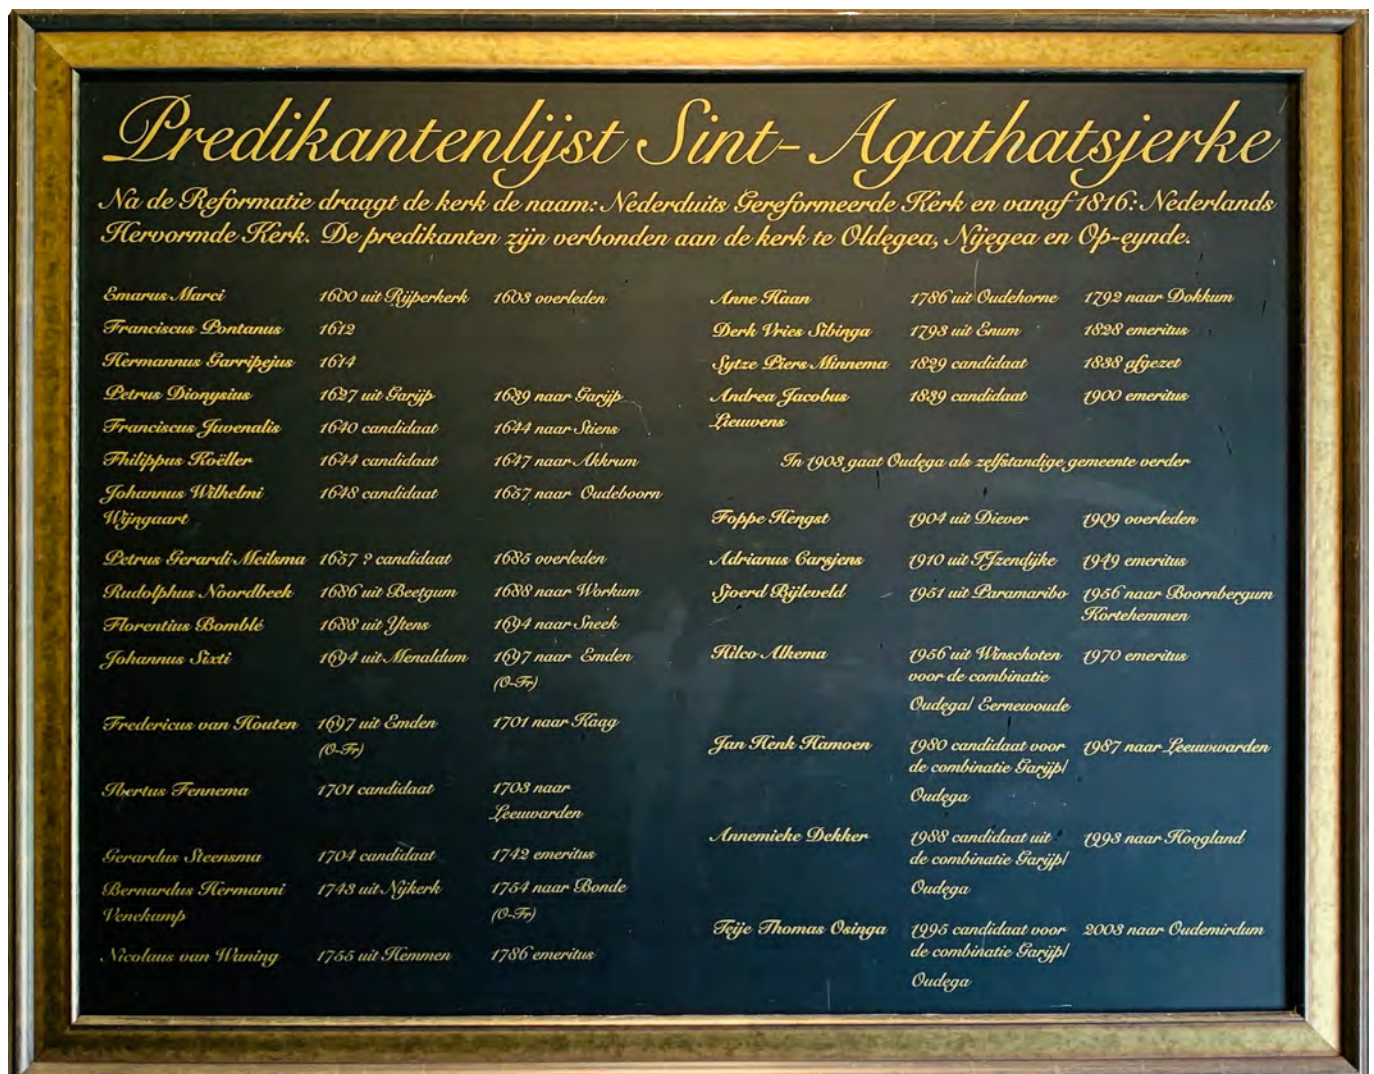 Predikantenlijst Sint-Agathatsjerke
Na de Reformatie draagt de kerk de naam: Nederduits Gereformeerde Kerk en vanaf 1816: Nederlands
Hervormde Kerk. De predikanten zijn verbonden aan de kerk te Oldegea, Nijegea en Op-eynde.
Emarus Marci 1600 uit Rijperkerk 1603 overleden
Franciscus Pontanus 1612
Hermannus Garripejus 1614
Petrus Dionysius 1627 uit Garijp 1639 naar Garijp
Franciscus Juvenalis 1640 candidaat 1644 naar Stiens
Philippus Koëller 1644 candidaat 1647 naar Akkrum
Johannus Wilhelmi 1648 candidaat 1657 naar Oudeboorn
Wijngaart
Petrus Gerardi Meilsma 1657 ? candidaat 1685 overleden
Rudolphus Noordbeek 1686 uit Beetgum 1688 naar Workum
Florentius Bomblé 1688 uit Ytens 1694 naar Sneek
Johannus Sixti 1694 uit Menaldum 1697 naar Emden
(O-Fr)
Fredericus van Houten 1697 uit Emden 1701 naar Haag
(O-Fr)
Ibertus Fennema 1701 candidaat 1703 naar
Leeuwarden
Gerardus Steensma 1704 candidaat 1742 emeritus
Bernardus Hermanni 1743 uit Nijkerk 1754 naar Bonde
Venekamp (O-Fr)
Nicolaus van Waning 1755 uit Hemmen 1786 emeritus
Anne Haan 1786 uit Oudehorne 1792 naar Dokkum
Derk Vries Sibinga 1793 uit Enum 1828 emeritus
Sytze Piers Minnema 1829 candidaat 1838 afgezet
Andrea Jacobus 1839 candidaat 1900 emeritus
Lieuwens
In 1903 gaat Oudega als zelfstandige gemeente verder
Foppe Hengst 1904 uit Diever 1909 overleden
Adrianus Carsjens 1910 uit IJzendijke 1949 emeritus
Sjoerd Bijleveld 1951 uit Paramaribo 1956 naar Boornbergum
Kortehemmen
Hilco Alkema 1956 uit Winschoten 1970 emeritus
voor de combinatie
Oudega/ Eernewoude
Jan Henk Hamoen 1980 candidaat voor 1987 naar Leeuwwarden
de combinatie Garijp/
Oudega
Annemieke Dekker 1988 candidaat uit 1993 naar Hoogland
de combinatie Garijp/
Oudega
Teije Thomas Osinga 1995 candidaat voor 2003 naar Oudemirdum
de combinatie Garijp/
Oudega